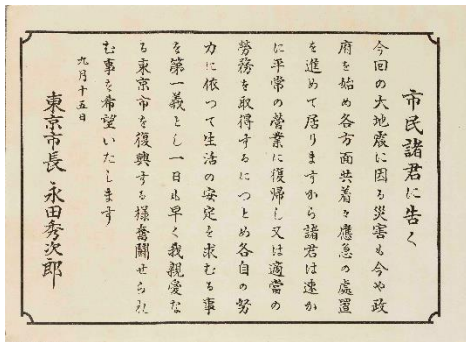 市民諸君に告く
今回の大地震に因る災害も今や政
府を始め各方面共着々應急の處置
を進めて居りますから諸君は速か
に平常の營業に復帰し又は適當の
勞務を取得するにつとめ各自の努
力に依つて生活の安定を求むる事
を第一義とし一日も早く我親愛な
る東京市を復興する樣奮鬪せられ
む事を希望いたします
九月十五日
東京市長 永田秀次郎